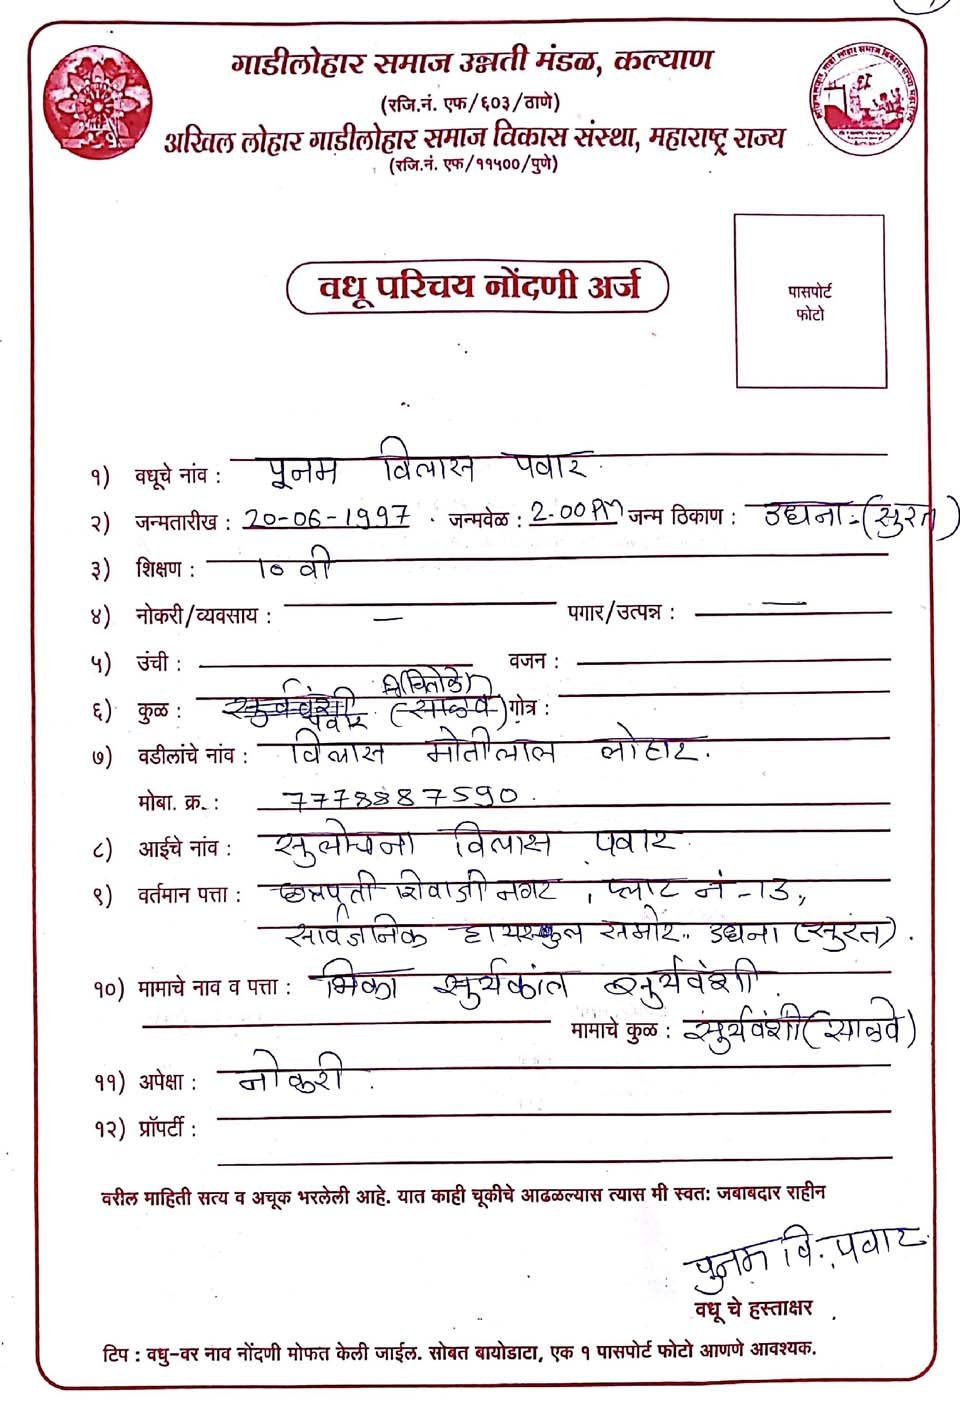 गाडीलोहार समाज उन्नती मंडळ, कल्याण
(रजि.नं. एफ/६०३/ठाणे)
अखिल लोहार गाडीलोहार समाज विकास संस्था, महाराष्ट्र राज्य
(रजि.नं. एफ/११५००/पुणे)
पासपोर्ट
फोटो
वधू परिचय नोंदणी अर्ज
१) वधूचे नांव : पूनम विलास पवार.
२) जन्मतारीख : 20-06-1997 . जन्मवेळ : 2.00 PM जन्म ठिकाण : उधना - (सुरत)
३) शिक्षण : १० वी
४) नोकरी/व्यवसाय : — पगार/उत्पन्न : —
५) उंची : वजन :
६) कुळ : पवार (साळवे) गोत्र :
७) वडीलांचे नांव : विलास मोतीलाल लोहार.
मोबा. क्र. : 7778887590.
८) आईचे नांव : सुलोचना विलास पवार.
९) वर्तमान पत्ता : छत्रपती शिवाजी नगर, प्लाट नं - 13,
सार्वजनिक हायस्कुल समोर.. उधना (सुरत).
१०) मामाचे नाव व पत्ता : भिका सुर्यकांत सुर्यवंशी.
मामाचे कुळ : सुर्यवंशी (साळवे)
११) अपेक्षा : नोकरी.
१२) प्रॉपर्टी :
वरील माहिती सत्य व अचूक भरलेली आहे. यात काही चूकीचे आढळल्यास त्यास मी स्वत: जबाबदार राहीन
पुनम वि. पवार
वधू चे हस्ताक्षर
टिप : वधु-वर नाव नोंदणी मोफत केली जाईल. सोबत बायोडाटा, एक १ पासपोर्ट फोटो आणणे आवश्यक.